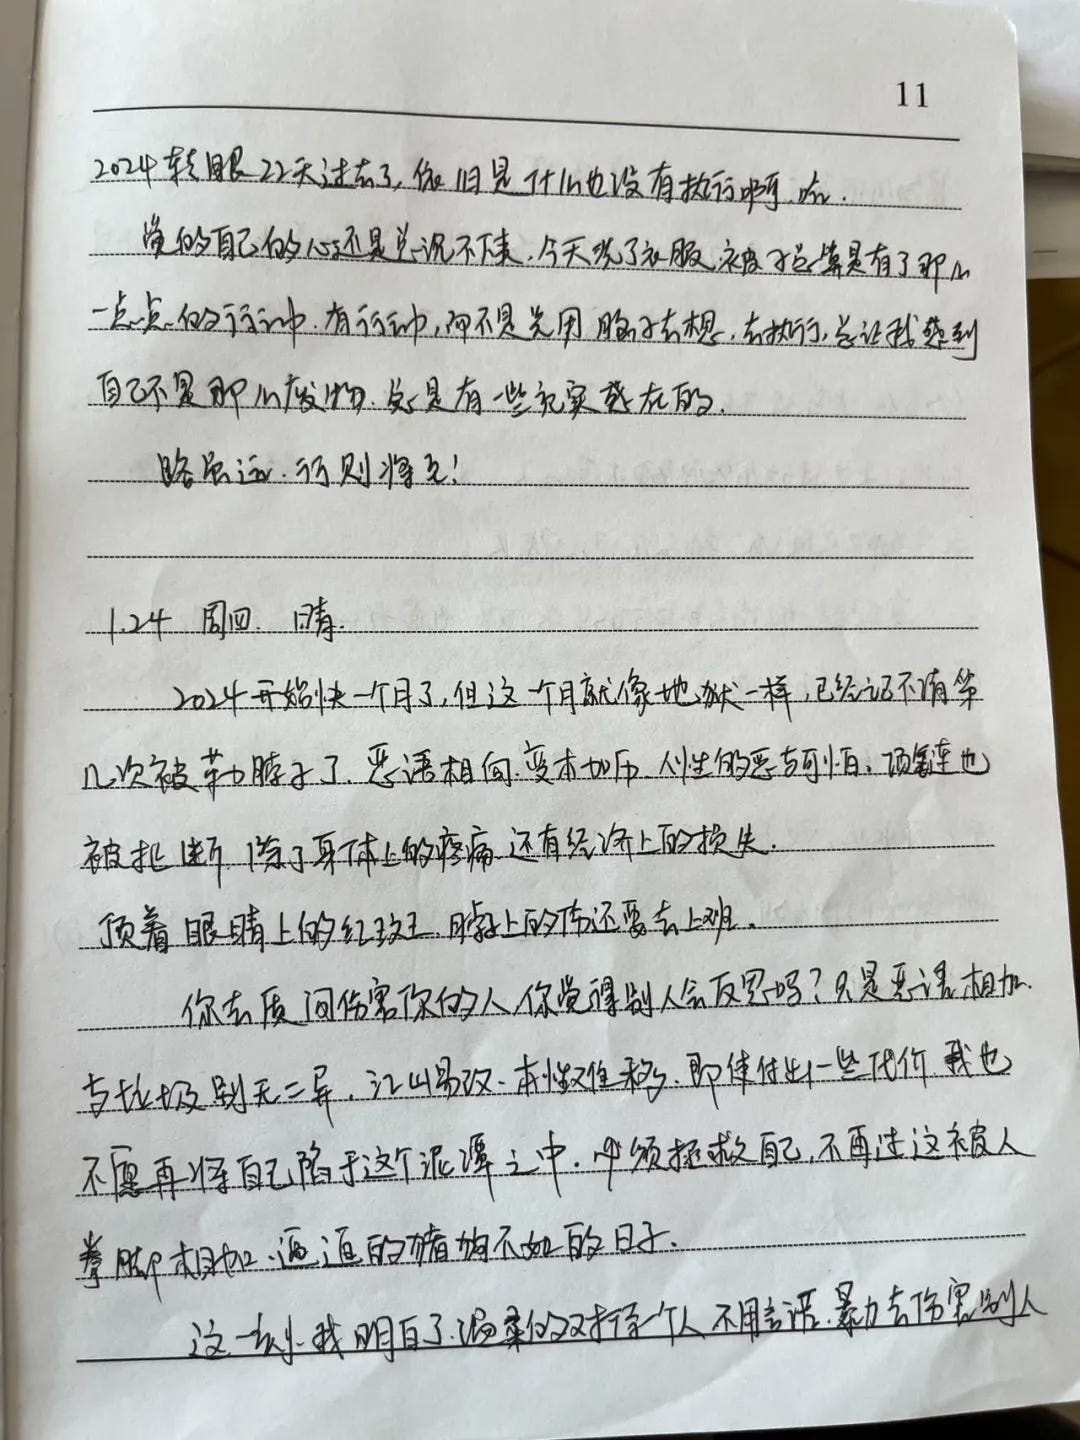 11
2024转眼22天过去了,依旧是什么也没有执行啊.
觉的自己的心还是总沉不下来.今天洗了衣服.被子总算是有了那么
一点点的行动.有行动,而不是光用脑子去想.去执行,总让我感到
自己不是那么废物.总是有一些充实感在的.
路虽远.行则将至!
1.24 周四. 晴.
2024开始快一个月了,但这一个月就像地狱一样,已经记不清第
几次被勒脖子了.恶语相向.变本加厉.人性的恶与可怕.项链也
被扯断.除了身体上的疼痛.还有经济上的损失.
顶着眼睛上的红斑.脖子上的伤还要去上班.
你去质问伤害你的人,你觉得别人会反思吗?只是恶语相加.
与垃圾别无二异.江山易改.本性难移.即使付出一些代价我也
不愿再将自己陷于这个泥潭之中.必须拯救自己,不再过这被人
拳脚相加.逼迫的猪狗不如的日子.
这一刻.我明白了.温柔的对待一个人不用言语.暴力去伤害别人